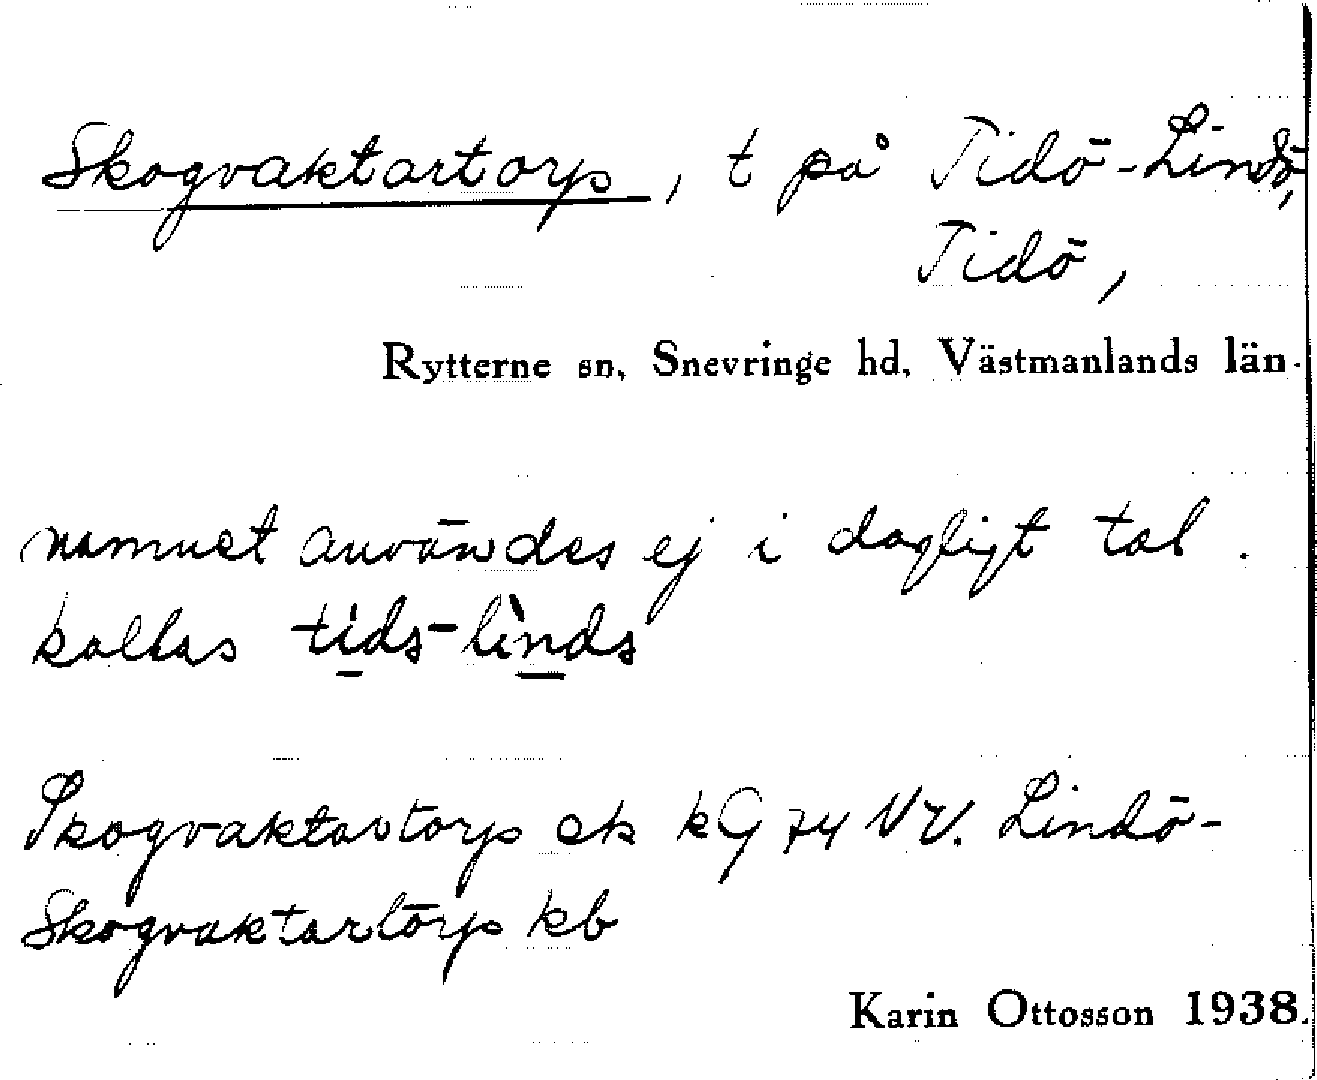 Skogvaktartorp, t på Tidö-Lindö,
Tidö,
Rytterne sn, Snevringe hd, Västmanlands län.
namnet användes ej i dagligt tal.
kallas
Skogvaktartorp ek kG 74 NV. Lindö-
Skogvaktartorp kb
Karin Ottosson 1938.